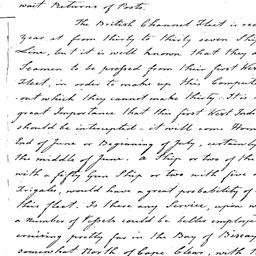 wait Returns of Posts.
The British Channel Fleet is
year at from thirty to thirty seven Ships
Line, but it is well known that they
Seamen to be pressed from their first West
Fleet, in order to make up this
out which they cannot make thirty. It is
great Importance that this first West Indi
should be intercepted. it will come Home
End of June or Beginning of July, certainly
the middle of June. a Ship or two of the
with a fifty Gun Ship or two with five
Frigates, would have a great probability of
this fleet. Is there any Service, upon
a number of Vessels could be better employed
cruizing partly far in the Bay of Biscay
somewhat North of Cape Clear, with